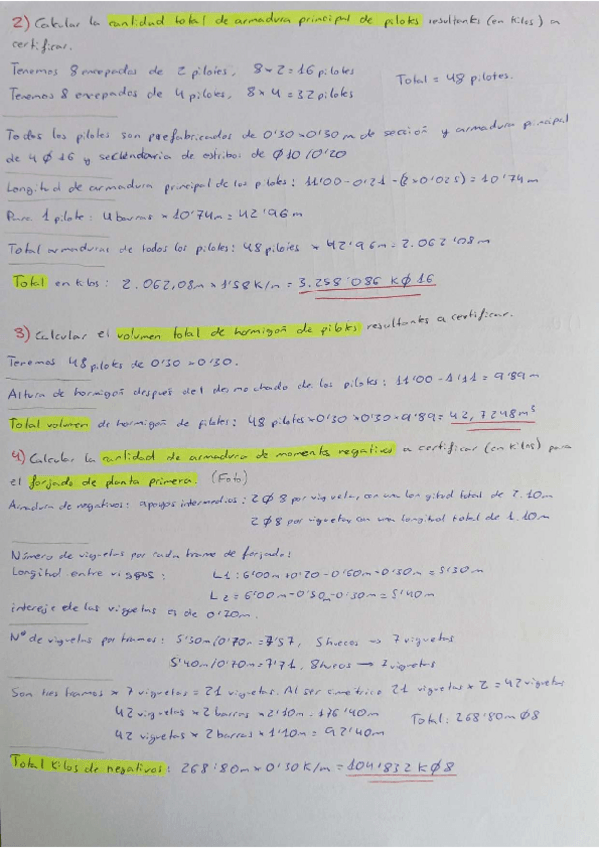 2) Calcular la cantidad total de armadura principal de pilotes resultantes (en kilos) a
certificar.
Tenemos 8 encepados de 2 pilotes, 8×2=16 pilotes
Total = 48 pilotes.
Tenemos 8 encepados de 4 pilotes, 8×4=32 pilotes
Todos los pilotes son prefabricados de 0'30×0'30m de sección y armadura principal
de 4Ø16 y secundaria de estribos de Ø10/0'20
Longitud de armadura principal de los pilotes: 11'00-0'21-(2×0'025)=10'74m
Para 1 pilote: 4 barras × 10'74m=42'96m
Total armaduras de todos los pilotes: 48 pilotes × 42'96m=2.062'08m
Total en kilos: 2.062,08m×1'58K/m=3.258'086 KØ16
3) Calcular el volumen total de hormigón de pilotes resultantes a certificar.
Tenemos 48 pilotes de 0'30×0'30.
Altura de hormigón después del desmochado de los pilotes: 11'00-1'11=9'89m
Total volumen de hormigón de pilotes: 48 pilotes×0'30×0'30×9'89=42,7248m³
4) Calcular la cantidad de armadura de momentos negativos a certificar (en kilos) para
el forjado de planta primera. (Foto)
Armadura de negativos: apoyos intermedios: 2Ø8 por viguetas, con una longitud total de 2.10m
2Ø8 por viguetas, con una longitud total de 1.10m
Número de viguetas por cada tramo de forjado:
Longitud entre vigas: L1: 6'00m+0'20-0'60m-0'30m=5'30m
L2=6'00m-0'30m-0'30m=5'40m
intereje de las viguetas es de 0'70m.
Nº de viguetas por tramos: 5'30m/0'70m=7'57, 8 huecos → 7 viguetas
5'40m/0'70m=7'71. 8 huecos → 7 viguetas
Son tres tramos × 7 viguetas = 21 viguetas. Al ser simétrico 21 viguetas × 2 = 42 viguetas
42 viguetas × 2 barras × 2'10m=176'40m
Total: 268'80m Ø8
42 viguetas × 2 barras × 1'10m=92'40m
Total kilos de negativos: 268'80m×0'30K/m=104'832 KØ8